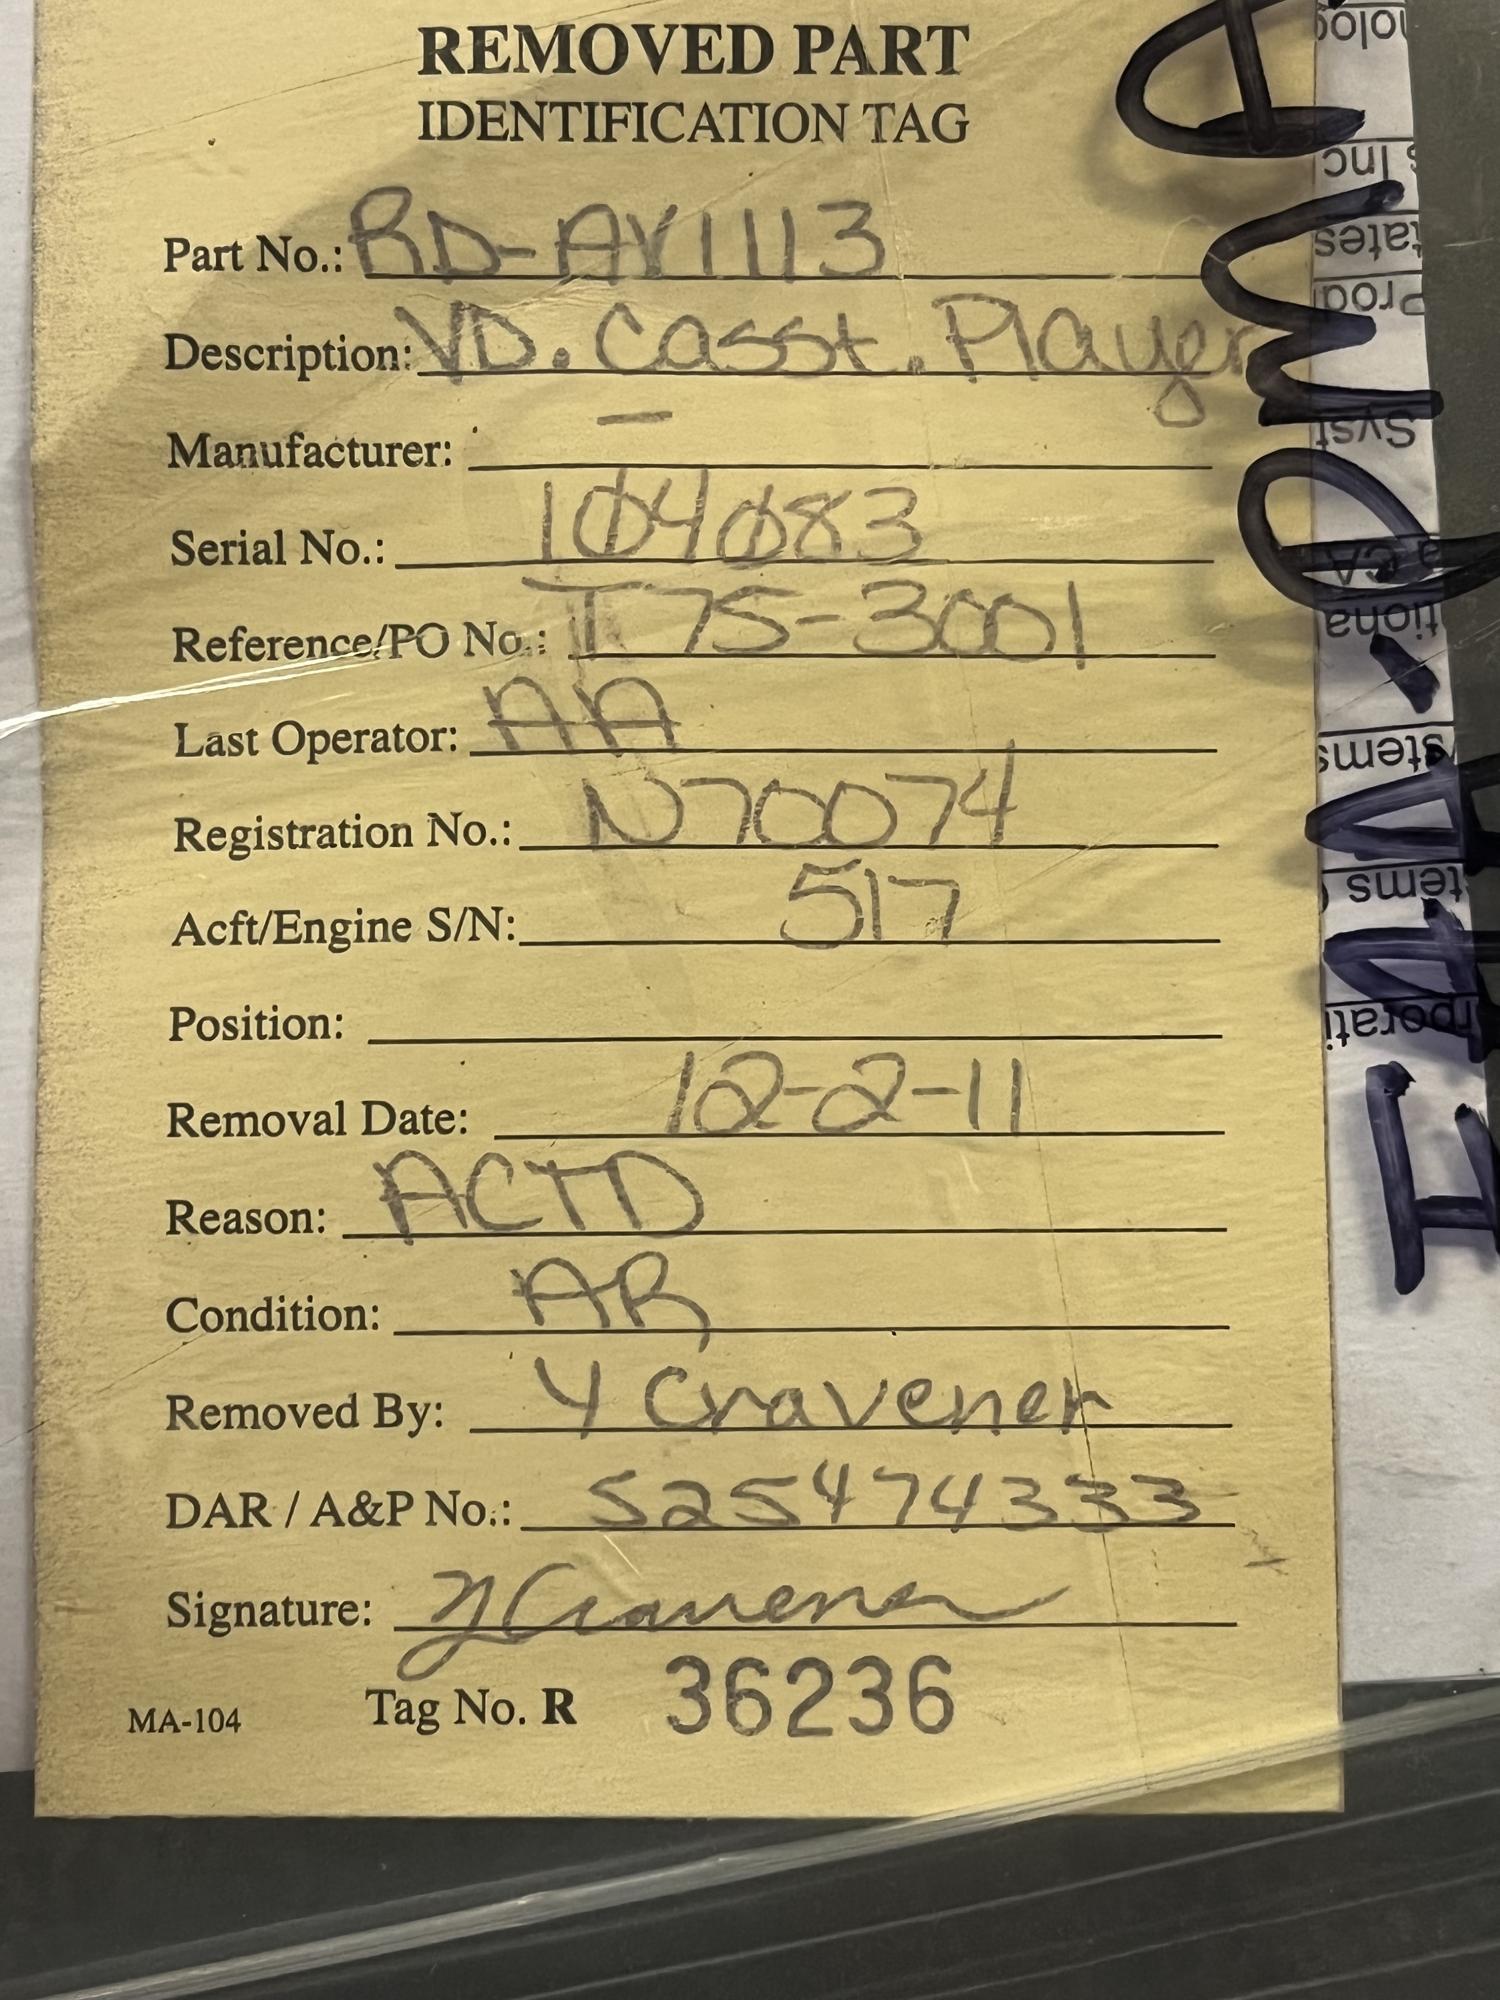 REMOVED PART
IDENTIFICATION TAG
Part No.: RD-AV1113
Description: VD. Casst. Player
Manufacturer: —
Serial No.: 104083
Reference/PO No.: T75-3001
Last Operator: AA
Registration No.: N70074
Acft/Engine S/N: 517
Position:
Removal Date: 12-2-11
Reason: ACTD
Condition: AR
Removed By: Y Cravener
DAR / A&P No.: 525474333
Signature: Y Cravener
MA-104 Tag No. R 36236
FAA-PMA
Inc
Syst
CA
stems
tems